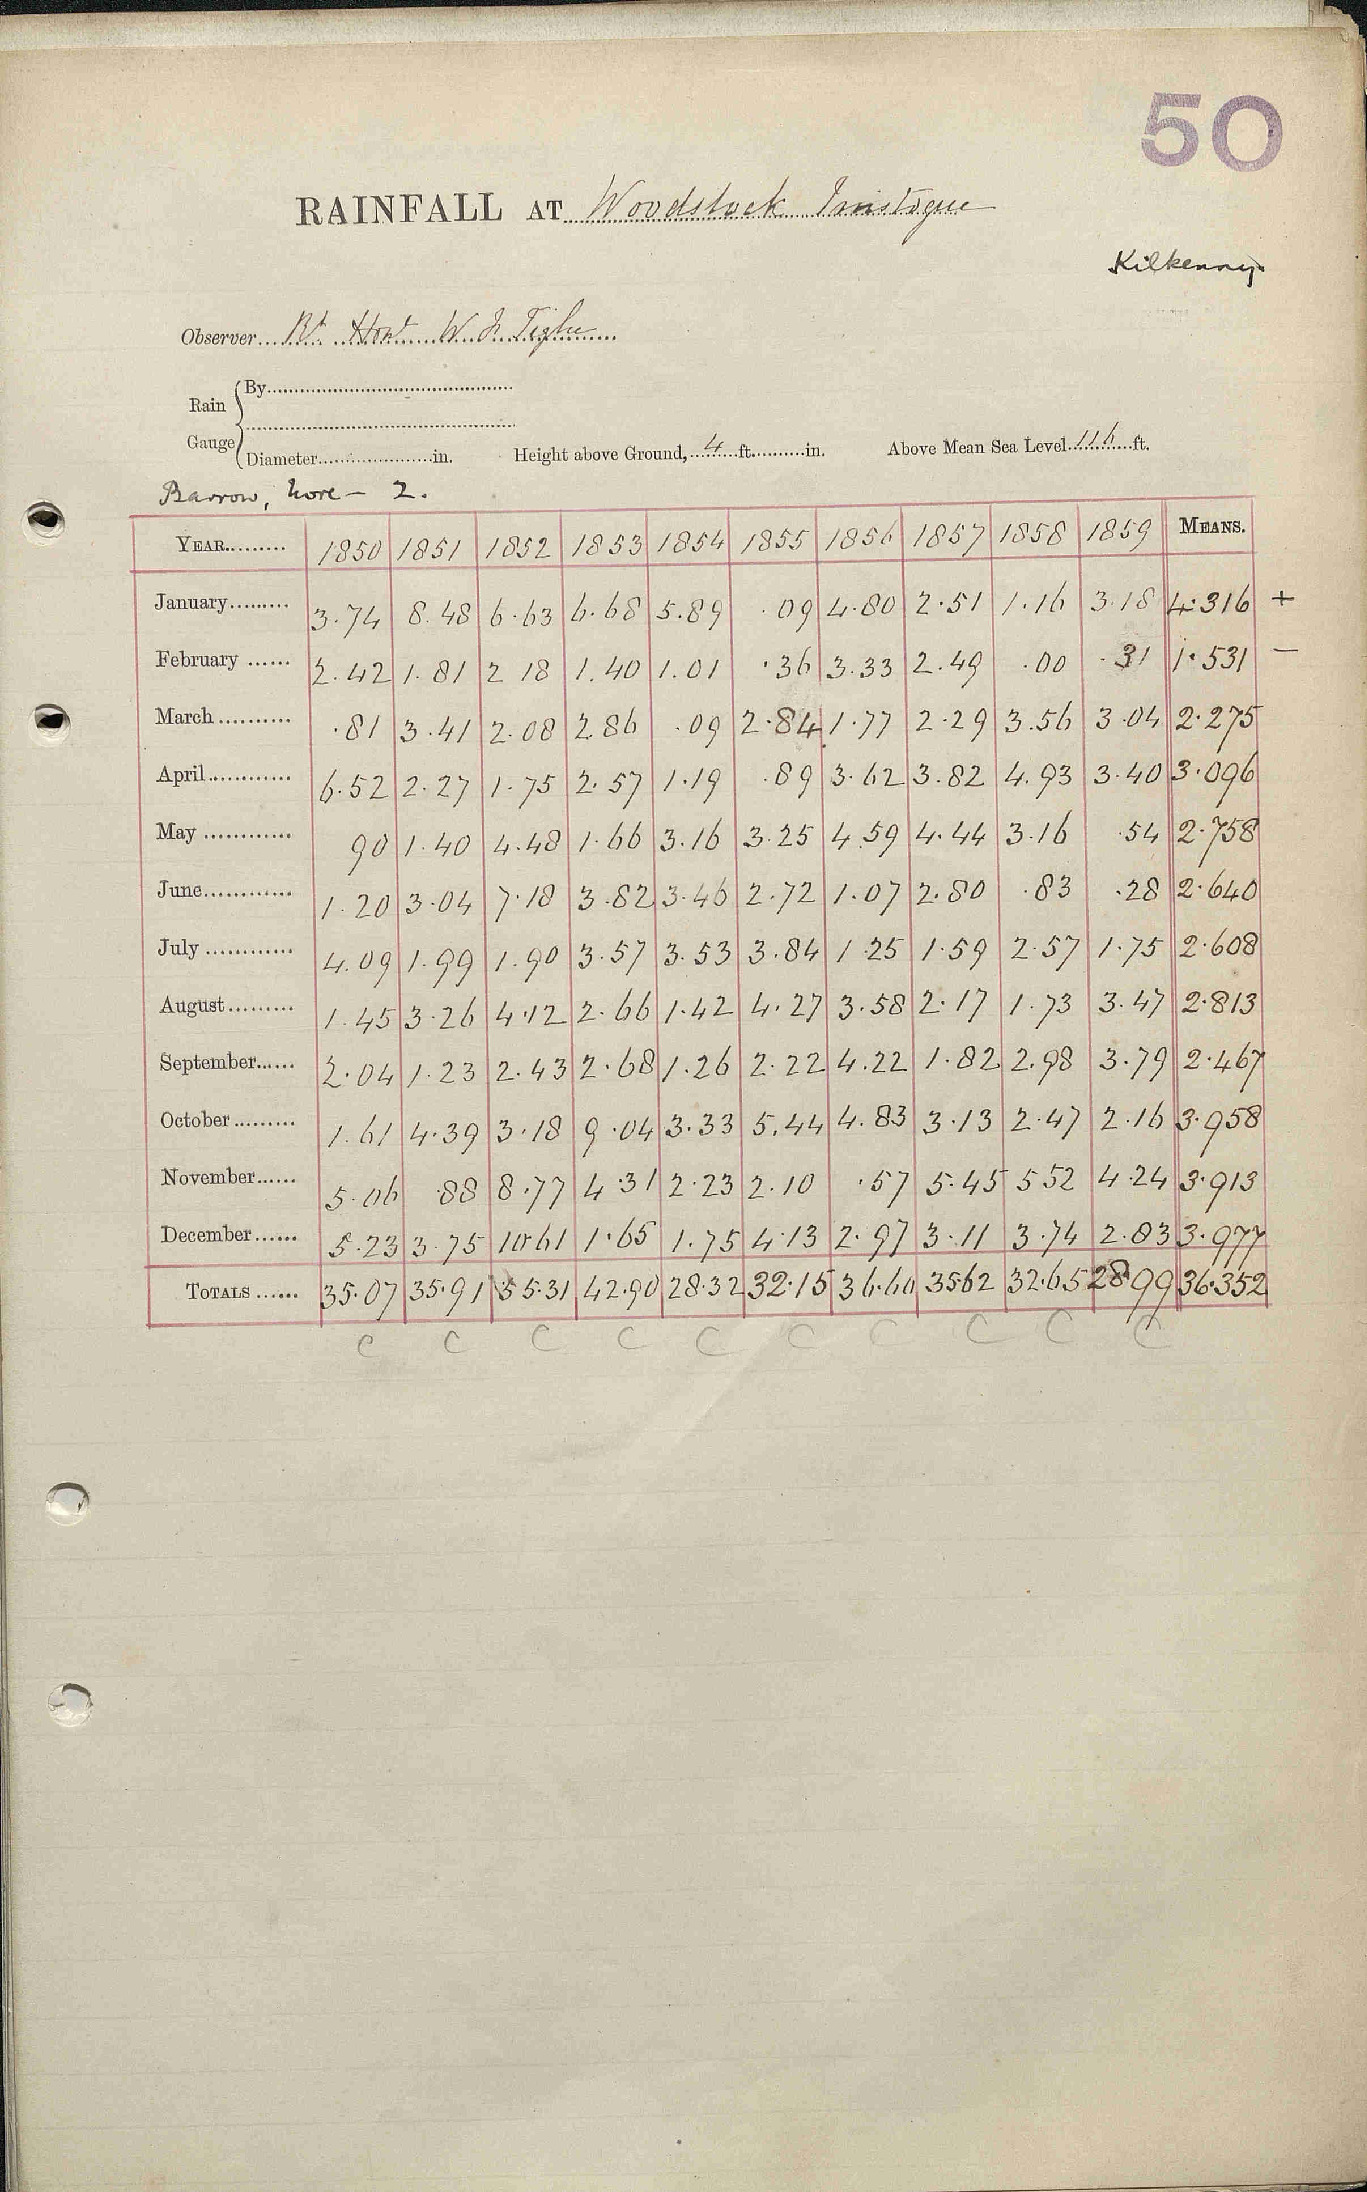 50
RAINFALL AT Woodstock Innistogue
Kilkenny.
Observer Rt. Honl. W F Tighe
Rain Gauge
By
Diameter in. Height above Ground, 4 ft. in. Above Mean Sea Level 116 ft.
Barrow, Nore – 2.
YEAR 1850 1851 1852 1853 1854 1855 1856 1857 1858 1859 MEANS.
January 3.74 8.48 6.63 6.68 5.89 .09 4.80 2.51 1.16 3.18 4.316 +
February 2.42 1.81 2 18 1.40 1.01 .36 3.33 2.49 .00 .31 1.531 –
March .81 3.41 2.08 2.86 .09 2.84 1.77 2.29 3.56 3.04 2.275
April 6.52 2.27 1.75 2.57 1.19 .89 3.62 3.82 4.93 3.40 3.096
May 90 1.40 4.48 1.66 3.16 3.25 4.59 4.44 3.16 .54 2.758
June 1.20 3.04 7.18 3.82 3.46 2.72 1.07 2.80 .83 .28 2.640
July 4.09 1.99 1.90 3.57 3.53 3.84 1.25 1.59 2.57 1.75 2.608
August 1.45 3.26 4.12 2.66 1.42 4.27 3.58 2.17 1.73 3.47 2.813
September 2.04 1.23 2.43 2.68 1.26 2.22 4.22 1.82 2.98 3.79 2.467
October 1.61 4.39 3.18 9.04 3.33 5.44 4.83 3.13 2.47 2.16 3.958
November 5.06 .88 8.77 4.31 2.23 2.10 .57 5.45 5 52 4.24 3.913
December 5.23 3.75 10.61 1.65 1.75 4.13 2.97 3.11 3.74 2.83 3.977
TOTALS 35.07 35.91 55.31 42.90 28.32 32.15 36.60 35.62 32.65 28.99 36.352
C C C C C C C C C C